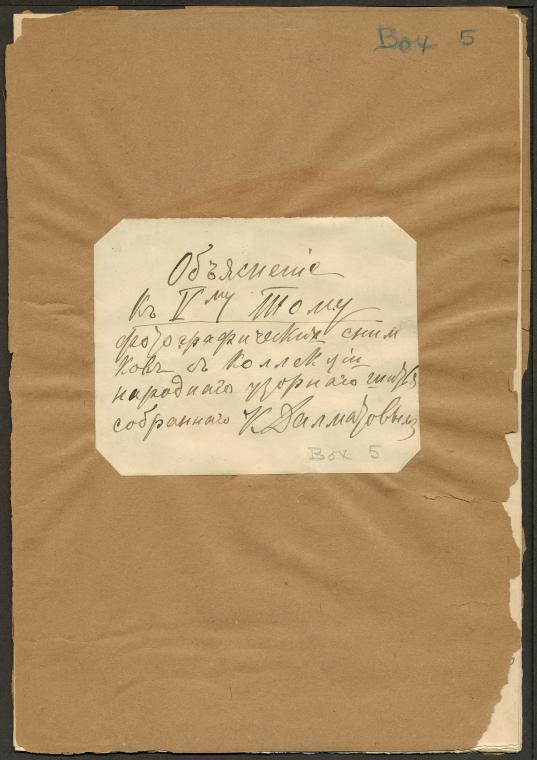 Box 5
Объясненіе
къ Vму Тому
фотографическихъ сним
ковъ съ коллекціи
народнаго узорнаго шитья
собраннаго К. Далматовымъ
Box 5